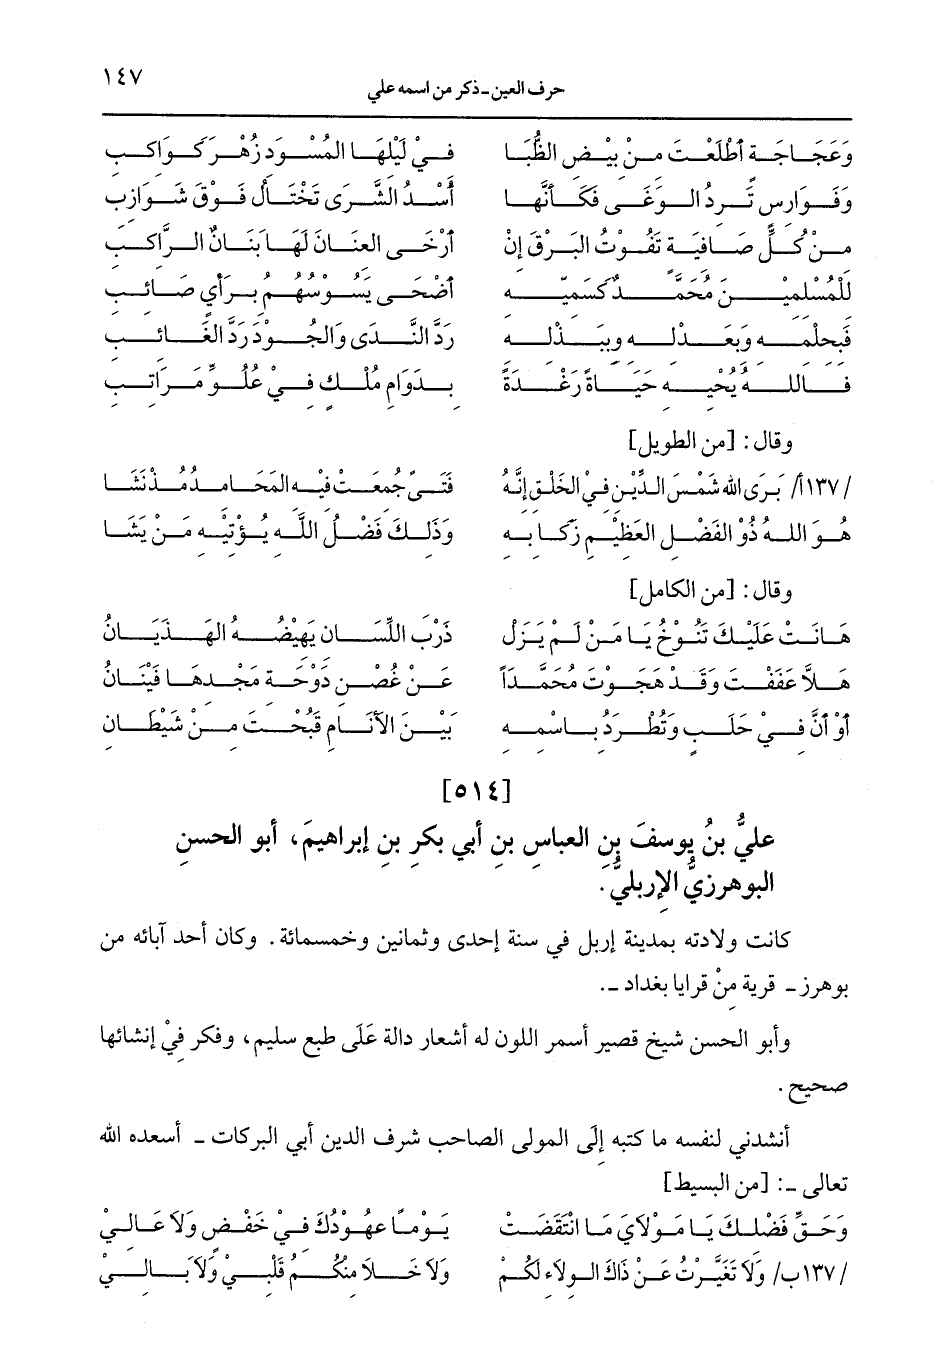 ١٤٧
حرف العين ـ ذكر من اسمه علي
وَعَجَاجَةٍ أَطْلَعْتَ مِنْ بِيْضِ الظُّبَا فِيْ لَيْلِهَا المُسْوَدِّ زُهْرَ كَوَاكِبِ
وَفَوَارِسٍ تَرِدُ الوَغَى فَكَأَنَّهَا أُسْدُ الشَّرَى تَخْتَالُ فَوْقَ شَوَازِبِ
مِنْ كُلِّ صَافِيَةٍ تَفُوْتُ البَرْقَ إِنْ أَرْخَى العِنَانَ لَهَا بَنَانُ الرَّاكِبِ
لِلْمُسْلِمِيْنَ مُحَمَّدٌ كَسَمِيِّهِ أَضْحَى يَسُوْسُهُمُ بِرَأْيٍ صَائِبِ
فَبِحِلْمِهِ وَبِعَدْلِهِ وَبِبَذْلِهِ رَدَّ النَّدَى وَالجُوْدَ رَدَّ الغَائِبِ
فَاللهُ يُحْيِيْهِ حَيَاةً رَغْدَةً بِدَوَامِ مُلْكٍ فِيْ عُلُوِّ مَرَاتِبِ
وقال: [من الطويل]
/١٣٧أ/ يَرَى اللهُ شَمْسَ الدِّيْنِ فِي الخَلْقِ إِنَّهُ فَتَىً جُمِعَتْ فِيْهِ المَحَامِدُ مُذْ نَشَا
هُوَ اللهُ ذُوْ الفَضْلِ العَظِيْمِ زَكَا بِهِ وَذَلِكَ فَضْلُ اللهِ يُؤْتِيْهِ مَنْ يَشَا
وقال: [من الكامل]
هَانَتْ عَلَيْكَ تَنُوْخُ يَا مَنْ لَمْ يَزَلْ ذَرِبَ اللِّسَانِ يَهِيْضُهُ الهَذَيَانُ
هَلاَّ عَفَفْتَ وَقَدْ هَجَوْتَ مُحَمَّداً عَنْ غُصْنِ دَوْحَةِ مَجْدِهَا فَيْنَانُ
أَوْ أَنَّ فِيْ حَلَبٍ وَتُطْرَدُ بِاسْمِهِ بَيْنَ الأَنَامِ قُبِحْتَ مِنْ شَيْطَانِ
[٥١٤]
عليُّ بنُ يوسفَ بنِ العباسِ بنِ أبي بكرِ بنِ إبراهيمَ، أبو الحسنِ
البوهرزيُّ الإربليُّ.
كانت ولادته بمدينة إربل في سنة إحدى وثمانين وخمسمائة. وكان أحد آبائه من
بوهرز ـ قرية مِنْ قرايا بغداد ـ.
وأبو الحسن شيخ قصير أسمر اللون له أشعار دالة عَلَى طبع سليم، وفكر فِيْ إنشائها
صحيح.
أنشدني لنفسه ما كتبه إِلَى المولى الصاحب شرف الدين أبي البركات ـ أسعده الله
تعالى ـ: [من البسيط]
وَحَقِّ فَضْلِكَ يَا مَوْلاَيَ مَا انْتَقَضَتْ يَوْماً عُهُوْدُكَ فِيْ خَفْضٍ وَلاَ عَالِيْ
/١٣٧ب/ وَلاَ تَغَيَّرْتُ عَنْ ذَاكَ الوِلاَءِ لَكُمْ وَلاَ خَلاَ مِنْكُمُ قَلْبِيْ وَلاَ بَالِيْ